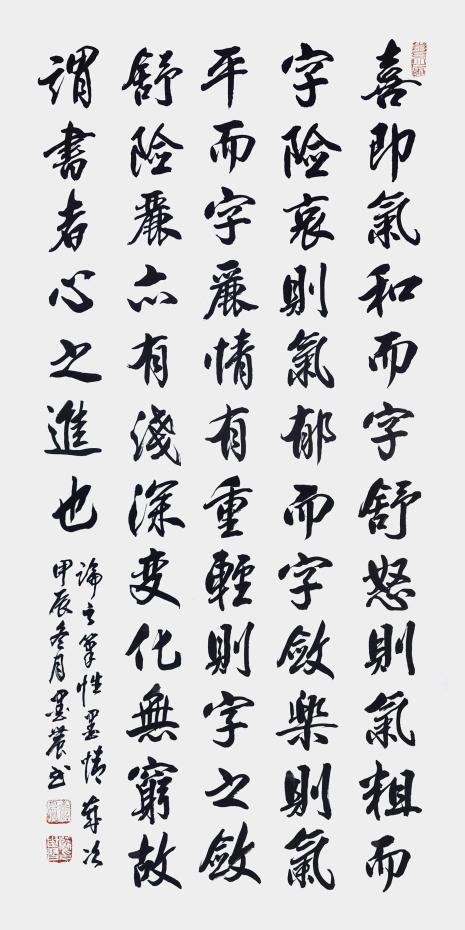 喜即氣和而字舒怒則氣粗而
字險哀則氣郁而字斂樂則氣
平而字麗情有重輕則字之斂
舒險麗亦有淺深变化無窮故
謂書者心之進也
論之筆性墨情
甲辰冬月墨農书